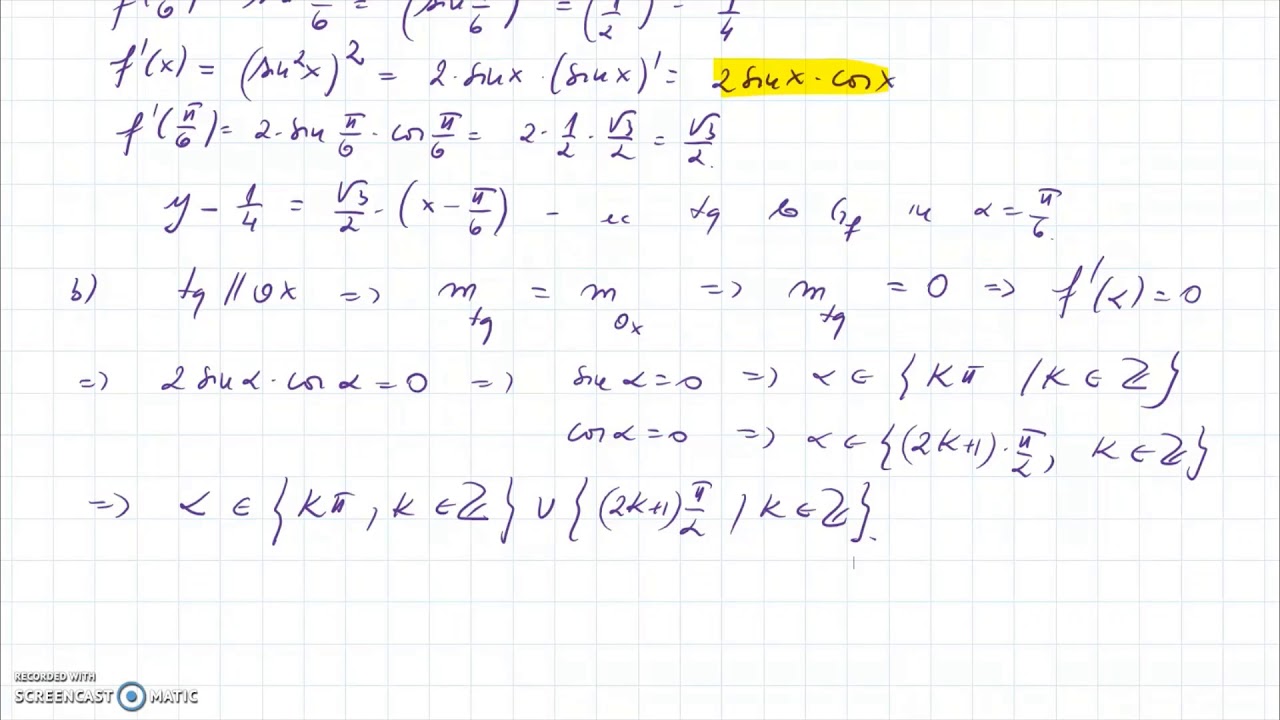 f'(π/6) = sin² π/6 = (sin π/6)² = (1/2)² = 1/4
f'(x) = (sin²x)² = 2·sinx·(sinx)' = 2sinx·cosx
f'(π/6) = 2·sin π/6 · cos π/6 = 2·1/2·√3/2 = √3/2.
y - 1/4 = √3/2 · (x - π/6) - ec tg la Gf in α = π/6.
b) tg // Ox => m tg = m Ox => m tg = 0 => f'(α) = 0
=> 2sinα·cosα = 0 => sinα = 0 => α ∈ {Kπ / K ∈ ℤ}
cosα = 0 => α ∈ {(2K+1)·π/2, K ∈ ℤ}
=> α ∈ {Kπ, K ∈ ℤ} ∪ {(2K+1)π/2 / K ∈ ℤ}.
RECORDED WITH
SCREENCAST MATIC